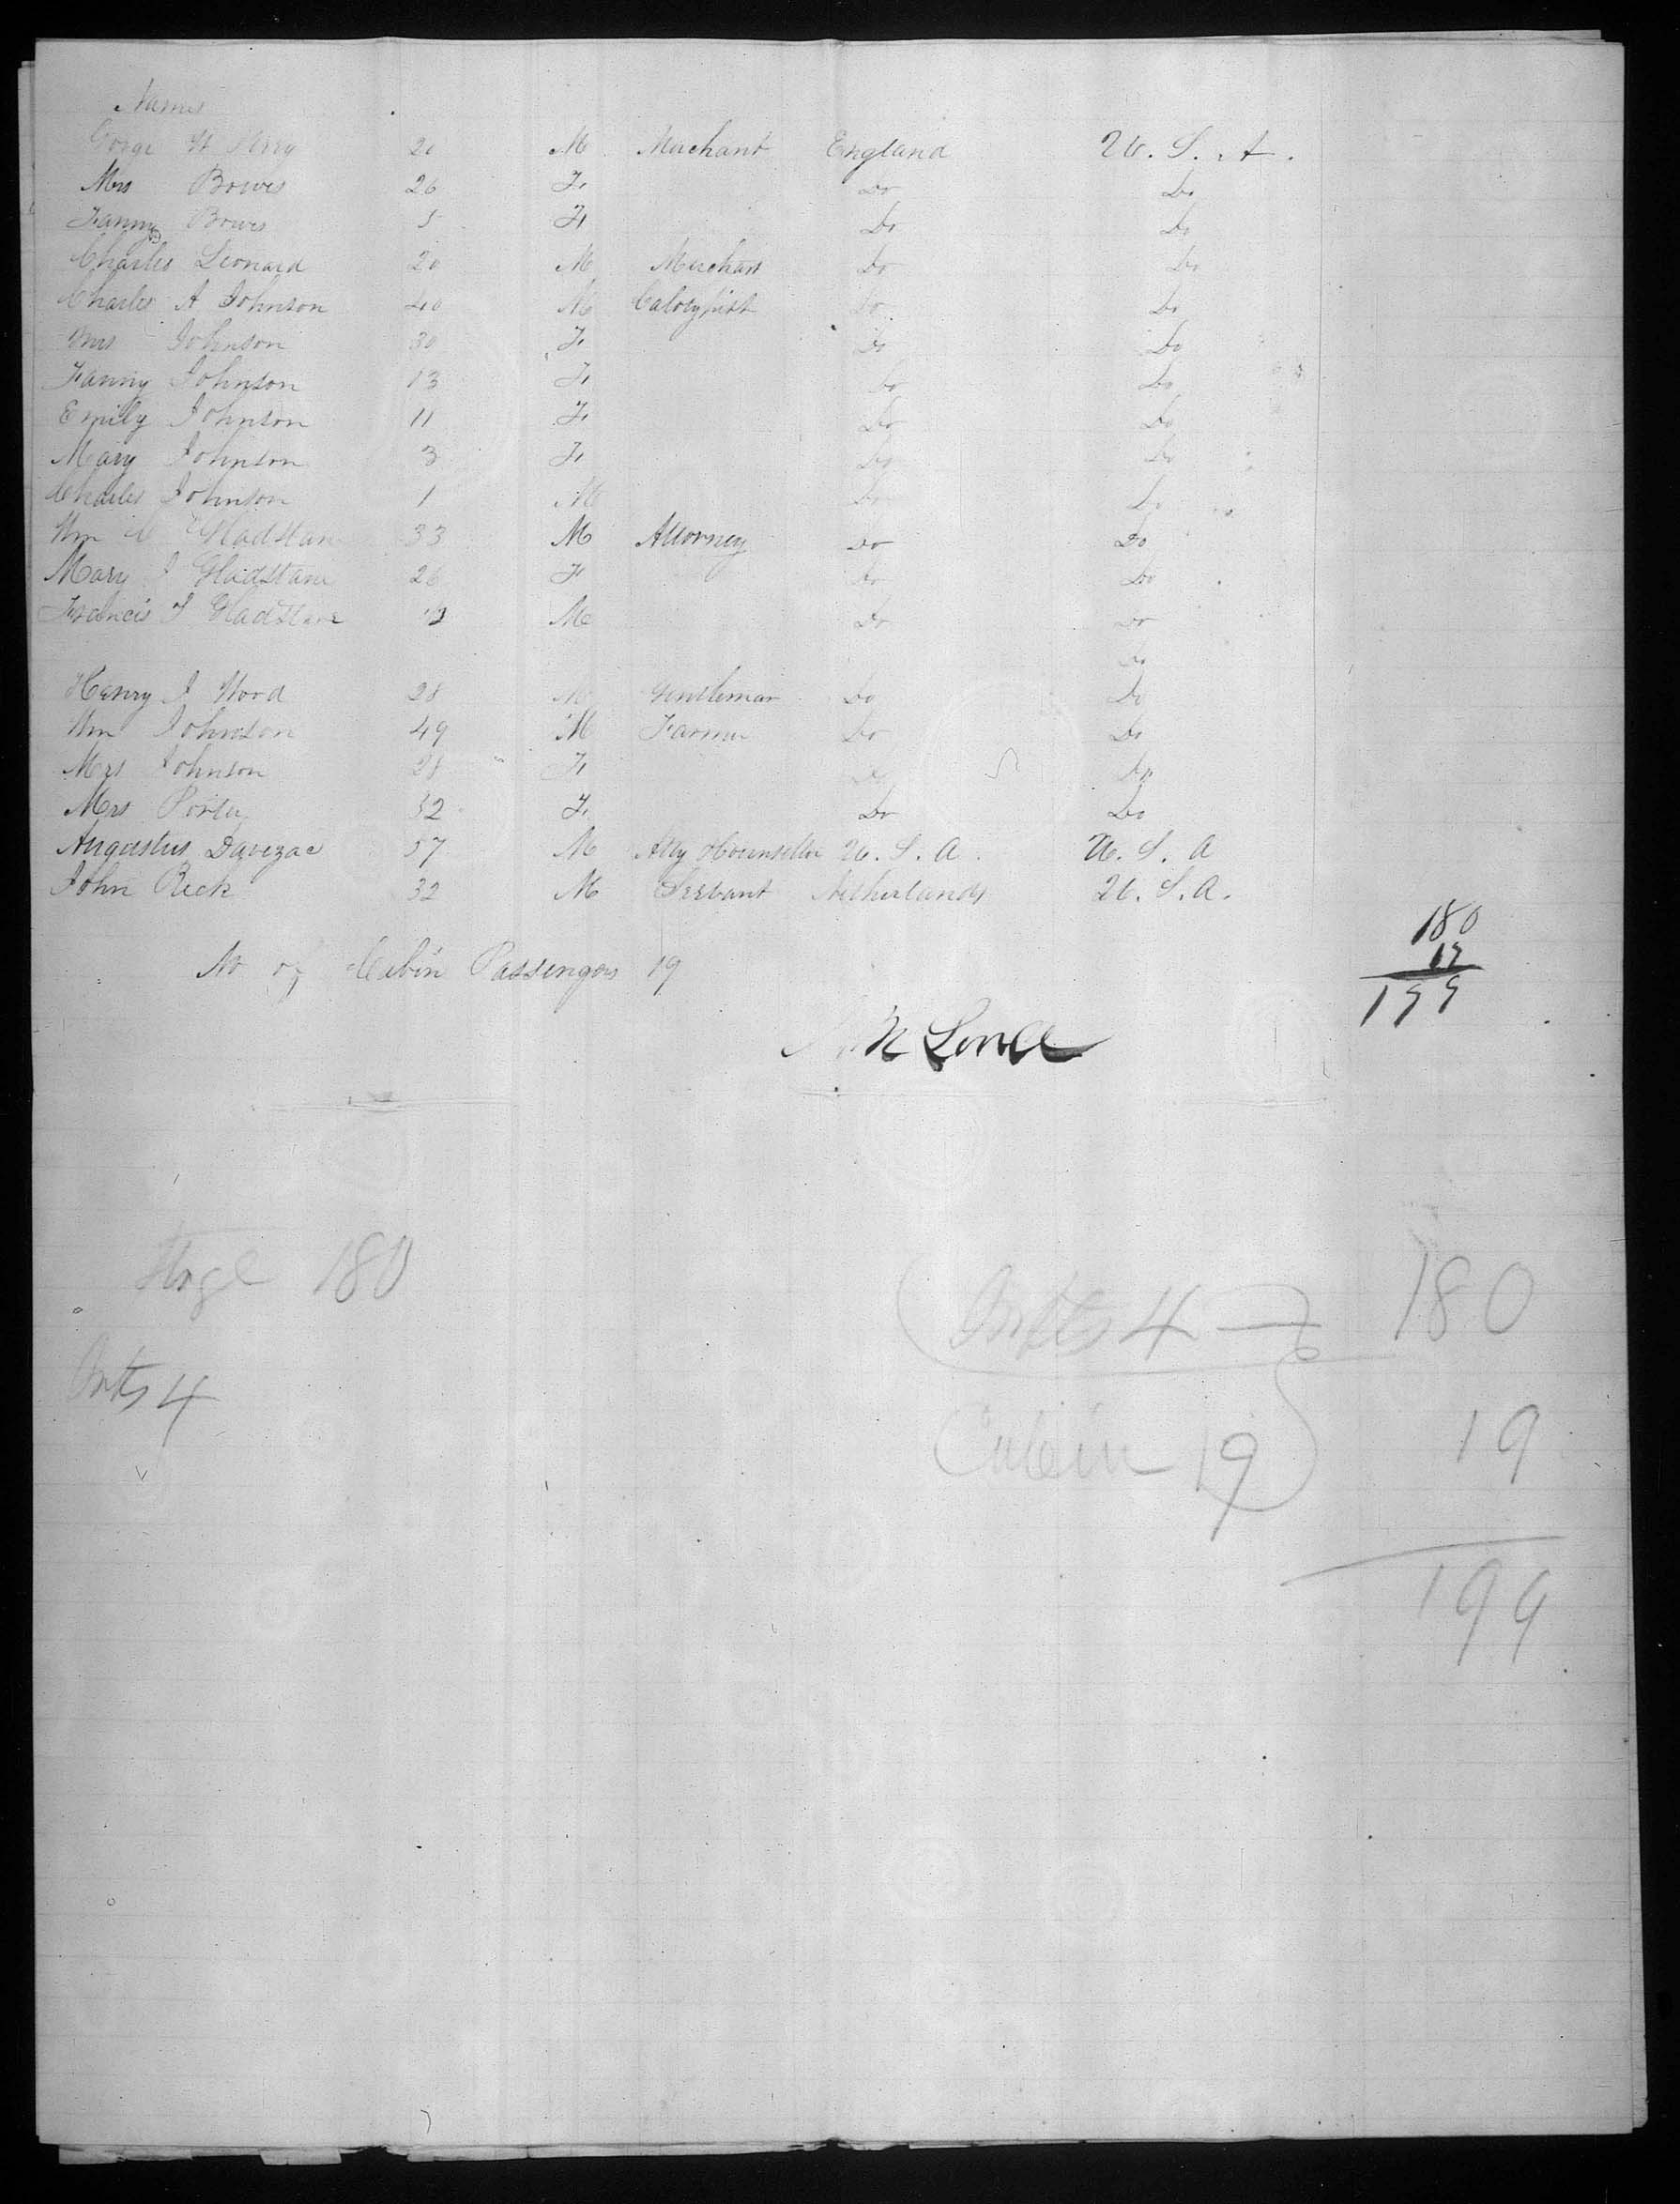 Names
George W 20 M Merchant England U. S. A.
Mrs Bowes 26 F Do Do
Fanny Bowes 5 F Do Do
Charles Leonard 20 M Merchant Do Do
Charles A Johnson 40 M Calotypist Do Do
Mrs Johnson 30 F Do Do
Fanny Johnson 13 F Do Do
Emily Johnson 11 F Do Do
Mary Johnson 3 F Do Do
Charles Johnson 1 M Do Do
Wm Gladstane 33 M Attorney Do Do
Mary J Gladstane 26 F Do Do
Francis J Gladstane M Do Do
Do
Henry J Wood 28 M Gentleman Do Do
Wm Johnson 49 M Farmer Do Do
Mrs Johnson 28 F Do Do
Mrs Porter 32 F Do Do
Augustus Davezac 57 M Atty Counsellor U. S. A. U. S. A
John Reck 32 M Servant Netherlands U. S. A.
180
19
199
No of Cabin Passengers 19
Stge 180
180
4
4
Cabin 19
19
199